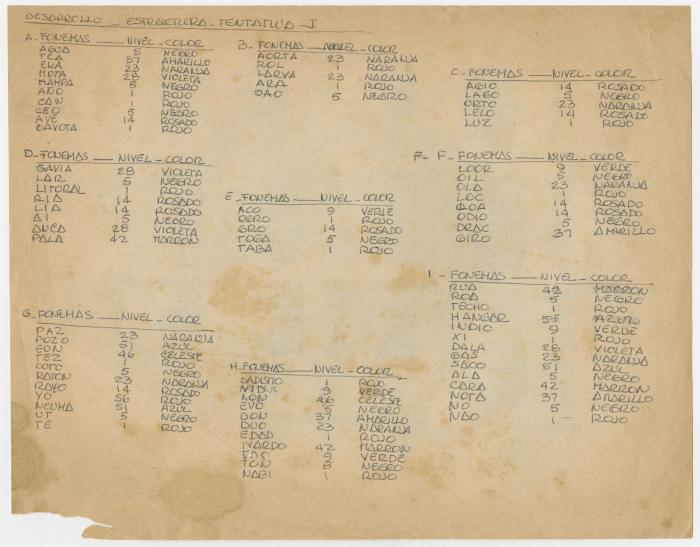 DESARROLLO - ESTRUCTURA - TENTATIVA - I
A - FONEMAS — NIVEL - COLOR
AGUA 5 NEGRO
TEA 37 AMARILLO
ERA 23 NARANJA
MOTA 28 VIOLETA
MAMPA 5 NEGRO
AÑO 1 ROJO
CAN 1 ROJO
CEO 5 NEGRO
AVE 14 ROSADO
GAVOTA 1 ROJO
B - FONEMAS — NIVEL - COLOR
AORTA 23 NARANJA
ROL 1 ROJO
LARVA 23 NARANJA
ARA 1 ROJO
OAO 5 NEGRO
C - FONEMAS — NIVEL - COLOR
AGIO 14 ROSADO
LAGO 5 NEGRO
ORTO 23 NARANJA
LELO 14 ROSADO
LUZ 1 ROJO
D - FONEMAS — NIVEL - COLOR
GAVIA 28 VIOLETA
LAR 5 NEGRO
LITORAL 1 ROJO
RIA 14 ROSADO
LIA 14 ROSADO
AI 5 NEGRO
ANCA 28 VIOLETA
PALA 42 MARRON
E - FONEMAS — NIVEL - COLOR
ACO 9 VERDE
OGRO 1 ROJO
GRO 14 ROSADO
TOGA 5 NEGRO
TABA 1 ROJO
F - FONEMAS — NIVEL - COLOR
LOOR 9 VERDE
OIL 5 NEGRO
OLA 23 NARANJA
LOC 1 ROJO
14 ROSADO
ODIO 14 ROSADO
DRAC 5 NEGRO
GIRO 37 AMARILLO
G - FONEMAS — NIVEL - COLOR
PAZ 23 NARANJA
POZO 51 AZUL
EON 46 CELESTE
TEZ 1 ROJO
COTO 5 NEGRO
RATON 23 NARANJA
RAYO 14 ROSADO
YO 56 ROJO
NEUMA 51 AZUL
UT 5 NEGRO
TE 1 ROJO
H - FONEMAS — NIVEL - COLOR
SADISTIO 1 ROJO
NIDIA 9 VERDE
NON 46 CELESTE
EVO 5 NEGRO
DON 37 AMARILLO
DUO 23 NARANJA
EDAD 1 ROJO
NARDO 42 MARRON
9 VERDE
TON 5 NEGRO
NABI 1 ROJO
I - FONEMAS — NIVEL - COLOR
RUA 42 MARRON
ROA 5 NEGRO
TECHO 1 ROJO
HANGAR 51 AZUL
INDIO 9 VERDE
XI 1 ROJO
DALA 28 VIOLETA
GAS 23 NARANJA
SACO 51 AZUL
ALA 5 NEGRO
CARA 42 MARRON
NOTA 37 AMARILLO
NO 5 NEGRO
NAO 1 ROJO